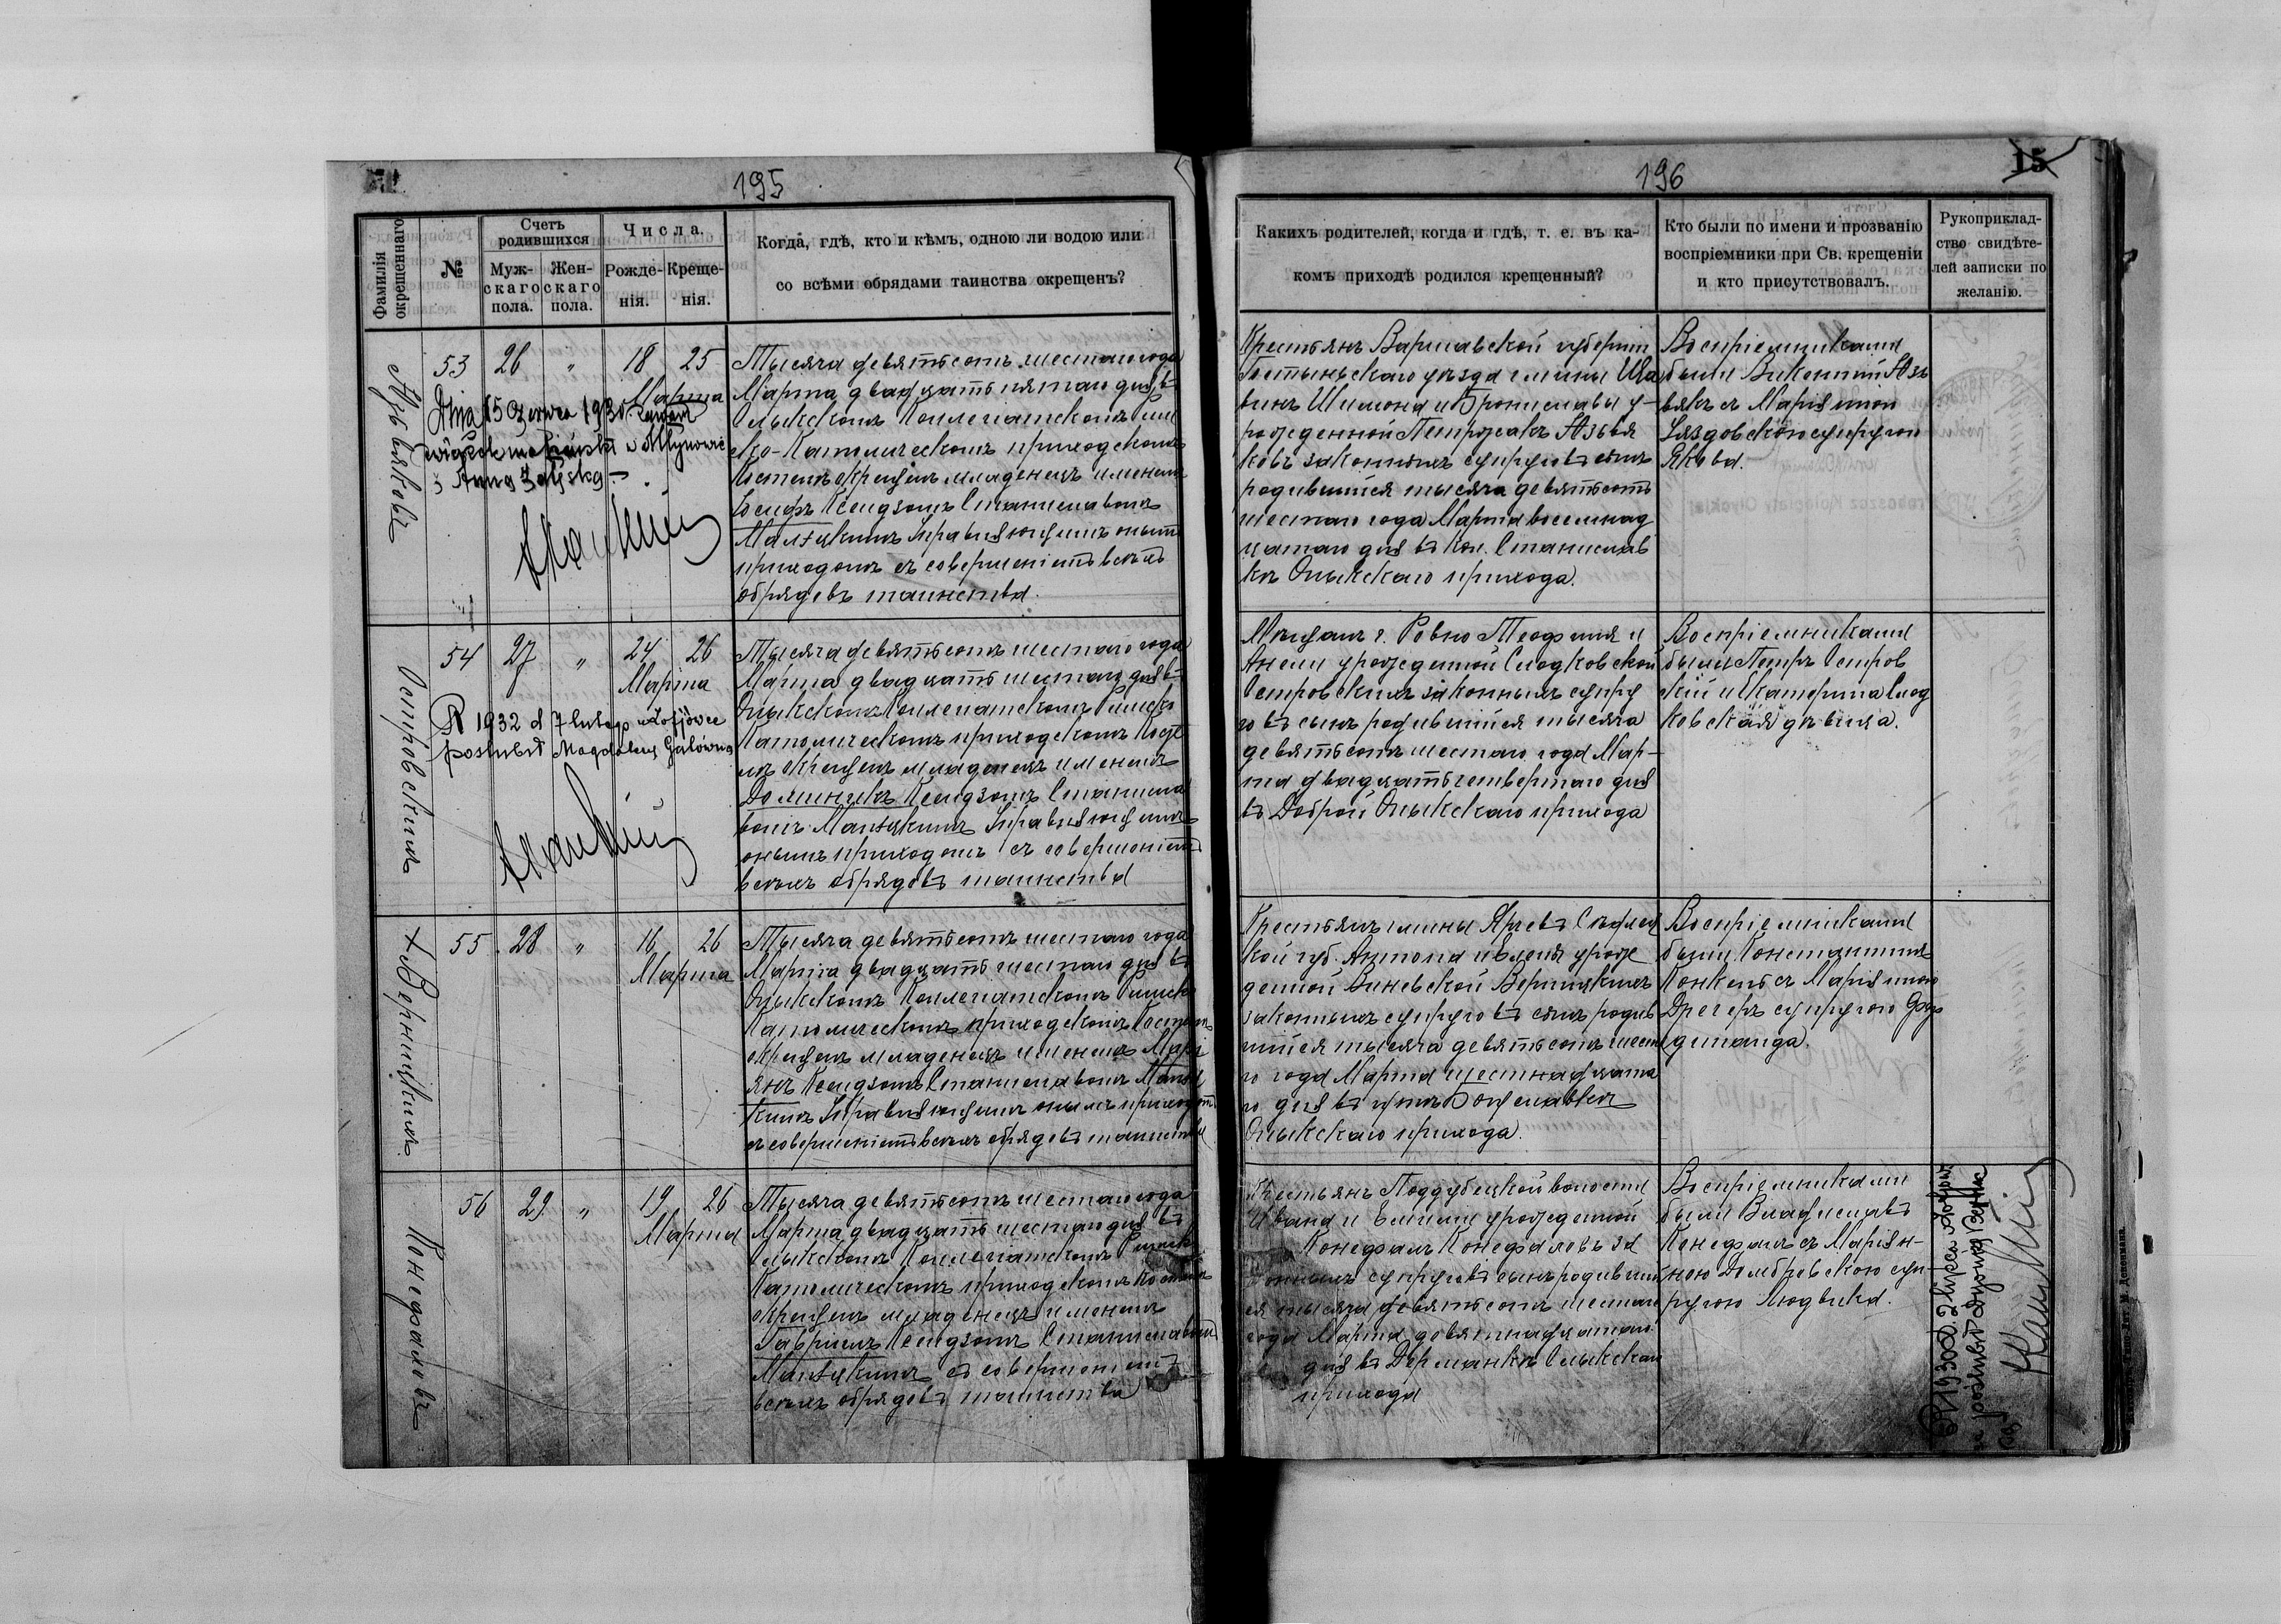 195
Фамилія окрещеннаго
№
Счетъ родившихся
Муж-
скаго
пола.
Жен-
скаго
пола.
Числа.
Рожде-
нія.
Креще-
нія.
Когда, гдѣ, кто и кѣмъ, одною ли водою или
со всѣми обрядами таинства окрещенъ?
53 26 " 18 25
Марта
Dnia 15 Czerwca 1930
związek małżeński w Młynowie
z Anną
Тысяча девятьсотъ шестаго года
Марта двадцать пятаго дня въ
Олыкскомъ Коллегіатскомъ Рим
ско-Католическомъ приходскомъ
Костелѣ окрещенъ младенецъ именемъ
Іосифъ Ксендзомъ Станиславомъ
управляющимъ онымъ
приходомъ съ совершеніемъ всѣхъ
обрядовъ таинства.
Островскихъ
54 27 " 24 26
Марта
R 1932 d 7 lutego w
poślubił Magdalenę Galównę
Тысяча девятьсотъ шестаго года
Марта двадцать шестаго дня въ
Олыкскомъ Коллегіатскомъ Римско
Католическомъ приходскомъ Косте
лѣ окрещенъ младенецъ именемъ
Доминикъ Ксендзомъ Станисла
вомъ управляющимъ
онымъ приходомъ съ совершеніемъ
всѣхъ обрядовъ таинства
55 28 " 16 26
Марта
Тысяча девятьсотъ шестаго года
Марта двадцать шестаго дня въ
Олыкскомъ Коллегіатскомъ Римско
Католическомъ приходскомъ Костелѣ
окрещенъ младенецъ именемъ Марі
янъ Ксендзомъ Станиславомъ
управляющимъ онымъ приходомъ
съ совершеніемъ всѣхъ обрядовъ таинства
Конефаловъ
56 29 " 19 26
Марта
Тысяча девятьсотъ шестаго года
Марта двадцать шестаго дня въ
Олыкскомъ Коллегіатскомъ Римско
Католическомъ приходскомъ Костелѣ
окрещенъ младенецъ именемъ
Габріилъ Ксендзомъ Станиславомъ
съ совершеніемъ
всѣхъ обрядовъ таинства
196
15
Какихъ родителей, когда и гдѣ, т. е. въ ка-
комъ приходѣ родился крещенный?
Кто были по имени и прозванію
воспріемники при Св. крещеніи
и кто присутствовалъ.
Рукоприклад-
ство свидѣте-
лей записки по
желанію.
Крестьянъ Варшавской губерніи
Гостынскаго уѣзда гмины
Шимона и Брониславы у-
рожденной
законныхъ супруговъ сынъ
родившійся тысяча девятьсотъ
шестаго года Марта восемнад
цатаго дня въ кол. Станиславов
кѣ Олыкскаго прихода.
Воспріемниками
были Викентій
съ Маріянною
супругою
Якова.
Мѣщанъ г. Ровно Теофиля и
Анели урожденной Слодковской
Островскихъ законныхъ супру
говъ сынъ родившійся тысяча
девятьсотъ шестаго года Мар-
та двадцать четвертаго дня
въ Доброй Олыкскаго прихода
Воспріемниками
были Петръ Остров
скій и Екатерина Слод
ковская дѣвица.
Крестьянъ гмины
губ. Антона и урож
денной
законныхъ супруговъ сынъ родив
шійся тысяча девятьсотъ шеста
го года Марта шестнадцата
го дня въ
Олыкскаго прихода.
Воспріемниками
были Константинъ
съ Маріянною
Дрегеръ супругою Фер
динанда.
Крестьянъ Поддубецкой волости
Ивана и урожденной
Конефалъ Конефаловъ за
конныхъ супруговъ сынъ родивший
ся тысяча девятьсотъ шестаго
года Марта девятнадцатаго
дня въ Дерманкѣ Олыкскаго
прихода
Воспріемниками
были Владиславъ
Конефалъ съ Маріян-
ною Домбровскою суп-
ругою Людвика.
R 1930 d. 2 lipca
poślubił